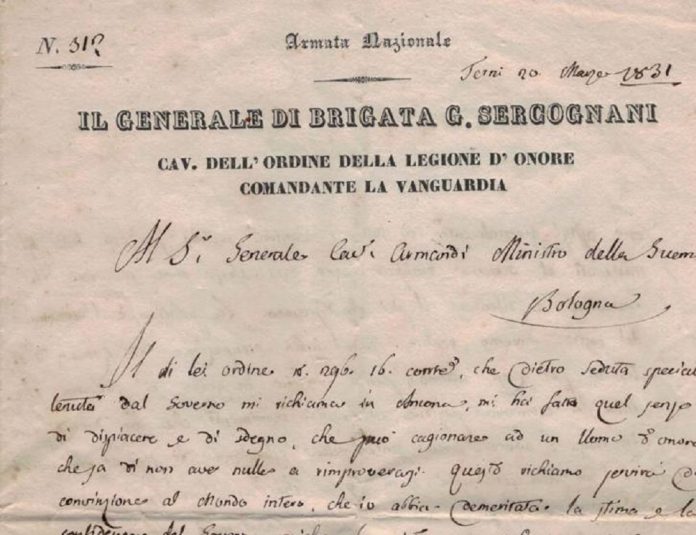 N. 512
Armata Nazionale
Terni 20 Marzo 1831
IL GENERALE DI BRIGATA G. SERCOGNANI
CAV. DELL' ORDINE DELLA LEGIONE D' ONORE
COMANDANTE LA VANGUARDIA
Al Sr. Generale Cavr. Armandi Ministro della Guerra
Bologna
Il di lei ordine n. 296. 16. corre, che dietro seduta special
tenuta dal Governo mi richiama in Ancona, mi ha fatto quel senso
di dispiacere e di sdegno, che può cagionare ad un Uomo d'onore
che sa di non aver nulla a rimproverarsi. Questo richiamo servirà di
convinzione al Mondo intero, che io abbia demeritata la stima e la